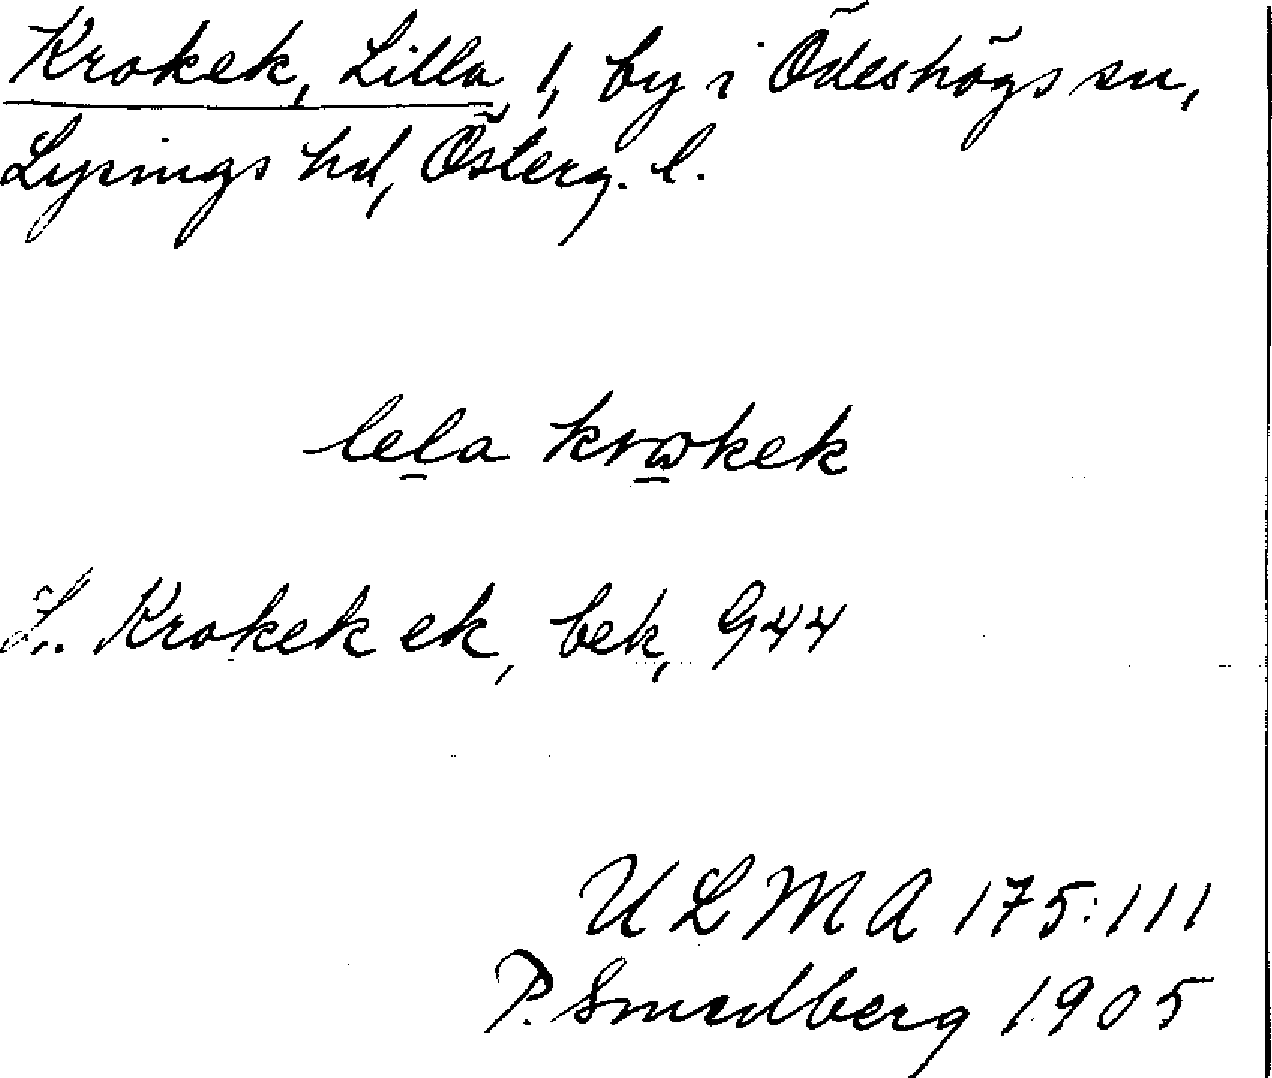 Krokek, Lilla, 1, by i Ödeshögs sn,
Lysings hd, Österg. l.
lela krωkek
L. Krokek ek, bek, 944
ULMA 175:111
P. Smedberg 1905